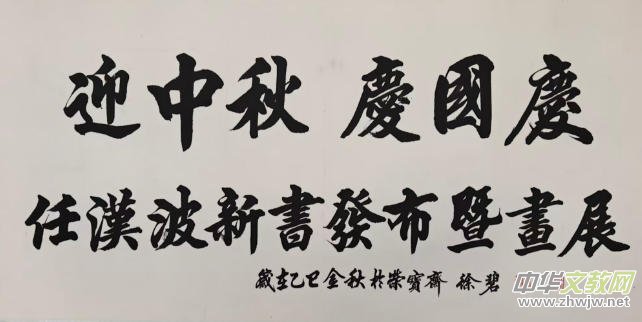 迎中秋 慶國慶
任漢波新書發布暨畫展
歲在乙巳金秋於榮寶齋 徐碧
中华文教网
www.zhwjw.net